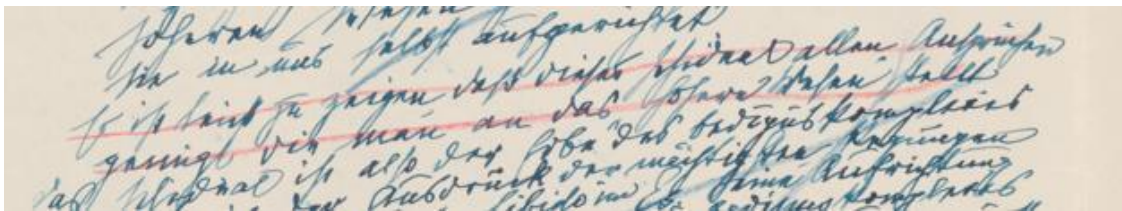 höheren Wesen
sie in uns selbst aufgerichtet
Es ist leicht zu zeigen daß dieses Ichideal allen Ansprüchen
genügt die man an das höhere Wesen stellt
Das Ichideal ist also der Erbe des Oedipuskomplexes
der Ausdruck der mächtigsten Regungen
Libido im Es seine Aufrichtung
Oedipuskomplexes